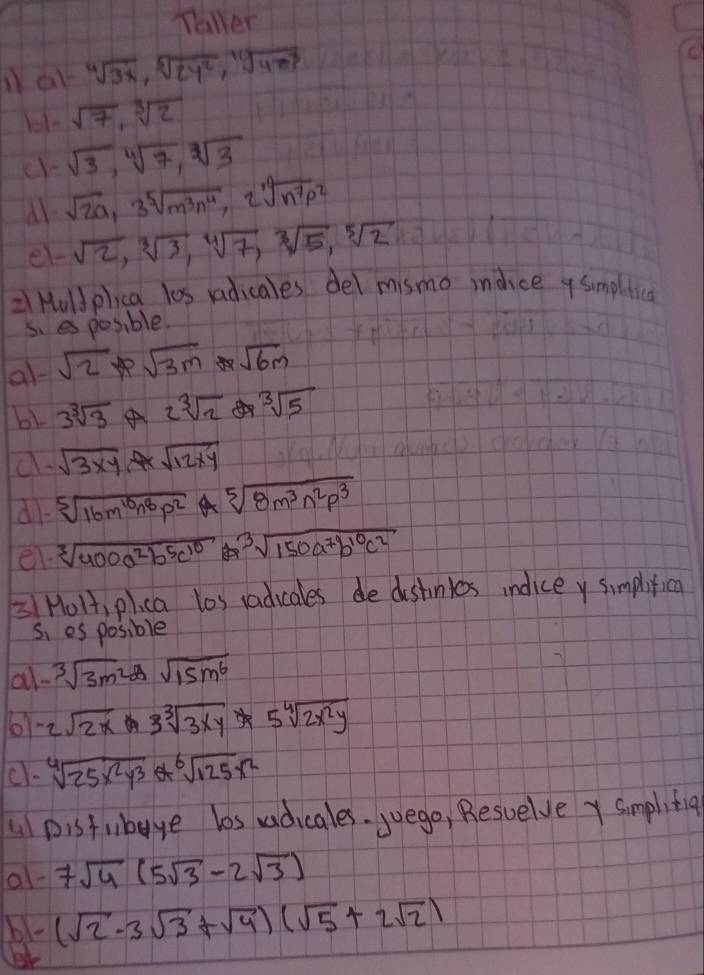 Taller
1) a)- ⁴√3x, ⁵√2y²,
b)- √7, ³√2
c)- √3, ⁴√7, ³√3
d)- √2a, 3⁵√m³n⁴, 2¹⁰√n⁷p²
e)- √2, ³√3, ⁴√7, ³√5, ⁵√2
2) Multiplica los radicales del mismo indice y simplifica
si es posible.
a)- √2 * √3m * √6m
b)- 3³√3 * 2³√2 * ³√5
c)- √3xy * √12xy
d)- ⁵√16m¹⁰n⁸p² * ⁵√8m³n²p³
e)- ³√400a²b⁵c¹⁰ * ³√150a⁷b¹⁰c²
3) Moltiplica los radicales de distintos indice y simplifica
si es posible
a)- ³√3m² * √15m⁶
b)- 2√2x * 3³√3xy * 5⁴√2x²y
c)- ⁴√25x²y³ * ⁶√125x²
4) Distribuye los radicales. juego, Resuelve y simplifiq
a)- 7√4 (5√3 - 2√3)
b)- (√2 - 3√3 + √4) (√5 + 2√2)